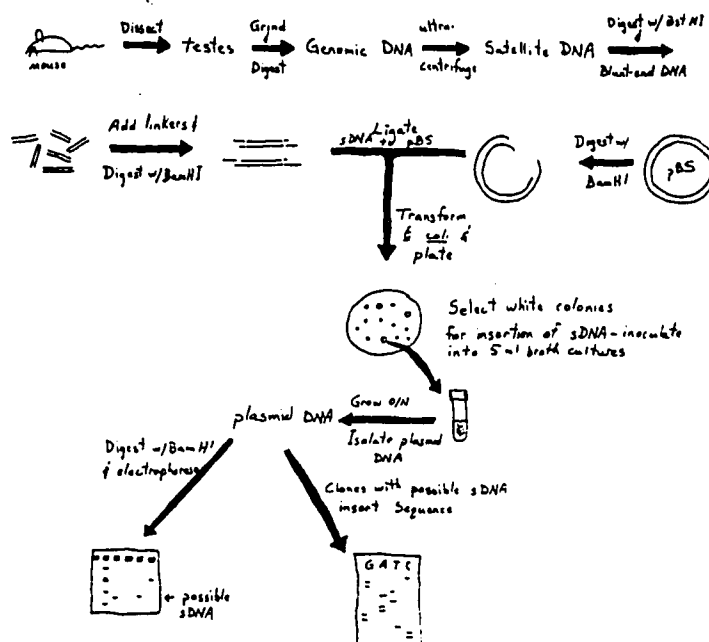 mouse
Dissect
testes
Grind
Digest
Genomic DNA
ultra-
centrifuge
Satellite DNA
Digest w/ BstNI
Blunt-end DNA
Add linkers &
Digest w/BamHI
Ligate
sDNA to pBS
Digest w/
BamHI
pBS
Transform
E coli &
plate
Select white colonies
for insertion of sDNA-inoculate
into 5 ml broth cultures
Grow O/N
Isolate plasmid
DNA
plasmid DNA
Digest w/BamHI
& electrophorese
Clones with possible sDNA
insert Sequence
← possible
sDNA
G A T C